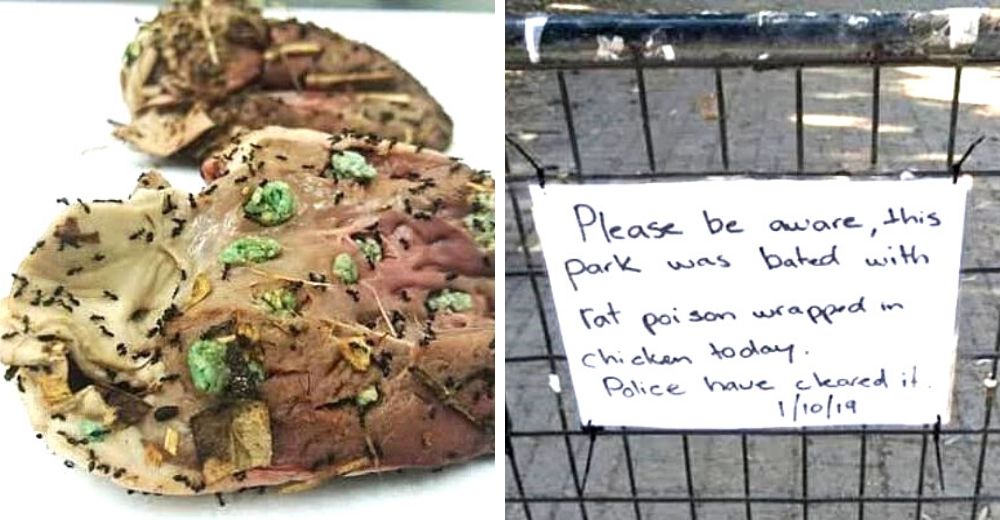 Please be aware, this
park was bated with
rat poison wrapped in
chicken today.
Police have cleared it.
1/10/19